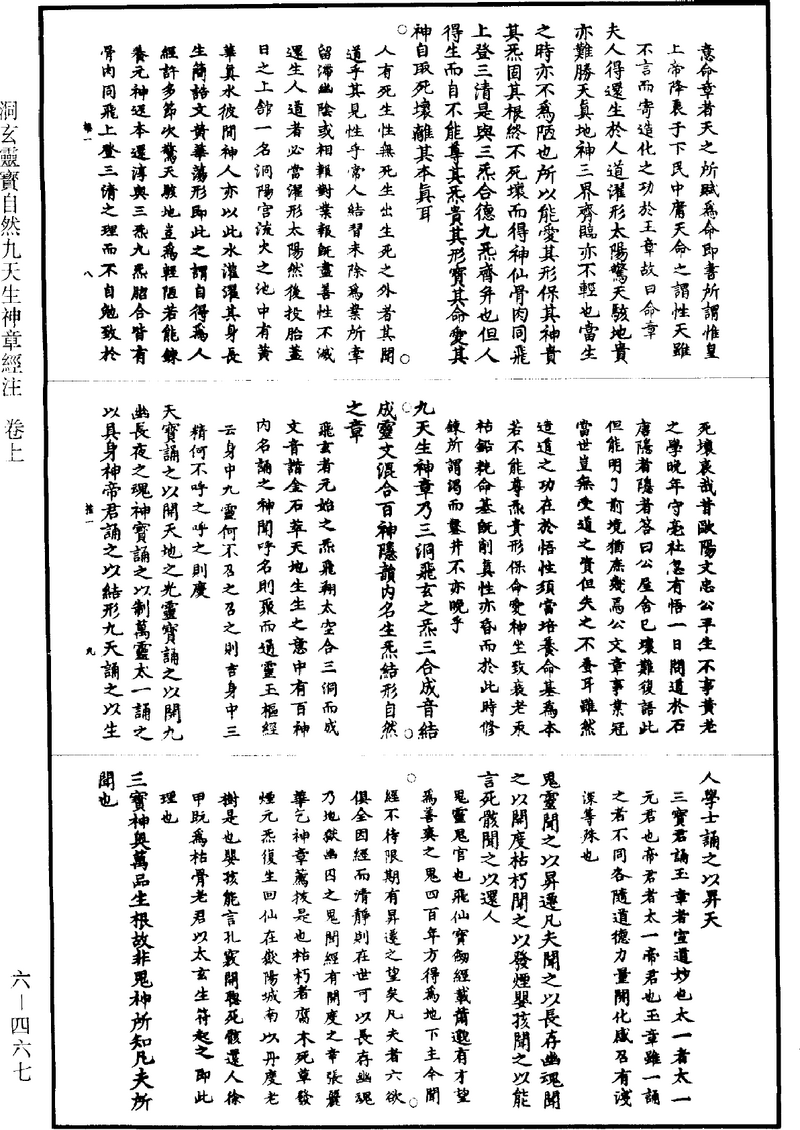 洞玄靈寶自然九天生神章經注　卷上
六—四六七
意命章者天之所賦爲命即書所謂惟皇
上帝降衷于下民中庸天命之謂性天雖
不言而寄造化之功於玉章故曰命章
夫人得還生於人道濯形太陽驚天駭地貴
亦難勝天真地神三界齊臨亦不輕也當生
之時亦不爲陋也所以能愛其形保其神貴
其炁固其根終不死壞而得神仙骨肉同飛
上登三清是與三炁合德九炁齊并也但人
得生而自不能尊其炁貴其形寶其命愛其
神自取死壞離其本真耳
人有死生性無死生出生死之外者其聞
道乎其見性乎常人結習未除爲業所牽
留滯幽陰或相報對業報既盡善性不滅
還生人道者必當濯形太陽然後投胎蓋
日之上館一名洞陽宮流火之池中有黃
華真水彼間神人亦以此水灌濯其身長
生簡語文黃華蕩形即此之謂自得爲人
經許多節次驚天駭地豈爲輕陋若能鍊
養元神返本還淳與三炁九炁脗合皆有
骨肉同飛上登三清之理而不自勉致於
死壞哀哉昔歐陽文忠公平生不事黃老
之學晚年守亳社忽有悟一日問道於石
唐隱者隱者答曰公屋舍已壞難復語此
但能明了前境猶庶幾焉公文章事業冠
當世豈無受道之質但失之不蚤耳雖然
造道之功在於悟性須當培養命基爲本
若不能尊炁貴形保命愛神坐致衰老汞
枯鉛耗命基既削真性亦昏而於此時修
鍊所謂渴而鑿井不亦晚乎
九天生神章乃三洞飛玄之炁三合成音結
成靈文混合百神隱韻內名生炁結形自然
之章
飛玄者元始之炁飛翔太空合三洞而成
文音諧金石萃天地生生之意中有百神
內名誦之神聞呼名則聚而通靈玉樞經
云身中九靈何不召之召之則吉身中三
精何不呼之呼之則慶
天寶誦之以開天地之光靈寶誦之以開九
幽長夜之魂神寶誦之以制萬靈太一誦之
以具身神帝君誦之以結形九天誦之以生
人學士誦之以昇天
三寶君誦玉章者宣道妙也太一者太一
元君也帝君者太一帝君也玉章雖一誦
之者不同各隨道德力量開化感召有淺
深等殊也
鬼靈聞之以昇遷凡夫聞之以長存幽魂聞
之以開度枯朽聞之以發煙嬰孩聞之以能
言死骸聞之以還人
鬼靈鬼官也飛仙寶劒經載蕭邈有才望
爲善爽之鬼四百年方得爲地下主今聞
經不待限期有昇遷之望矣凡夫者六欲
俱全因經而清靜則在世可以長存幽魂
乃地獄幽囚之鬼聞經有開度之幸張麗
華乞神章薦拔是也枯朽者腐木死草發
煙元炁復生回仙在嶽陽城南以丹度老
樹是也嬰孩能言孔竅開聰死骸還人徐
甲既爲枯骨老君以太玄生符起之即此
理也
三寶神奧萬品生根故非鬼神所知凡夫所
聞也